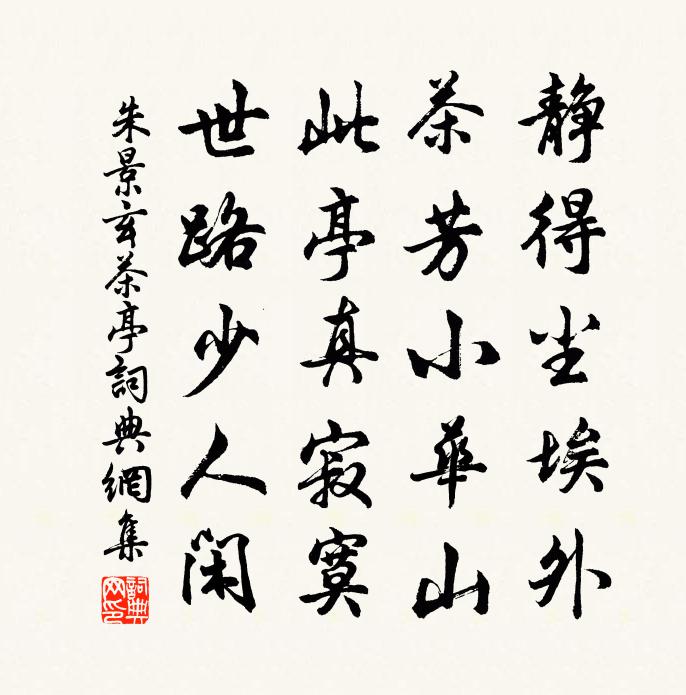 静得尘埃外
茶芳小華山
此亭真寂寞
世路少人闲
朱景玄茶亭詞典網集
詞典網印